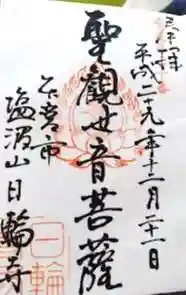 奉拝
平成二十九年十二月二十一日
聖觀世音菩薩
塩沼山日輪寺
日輪